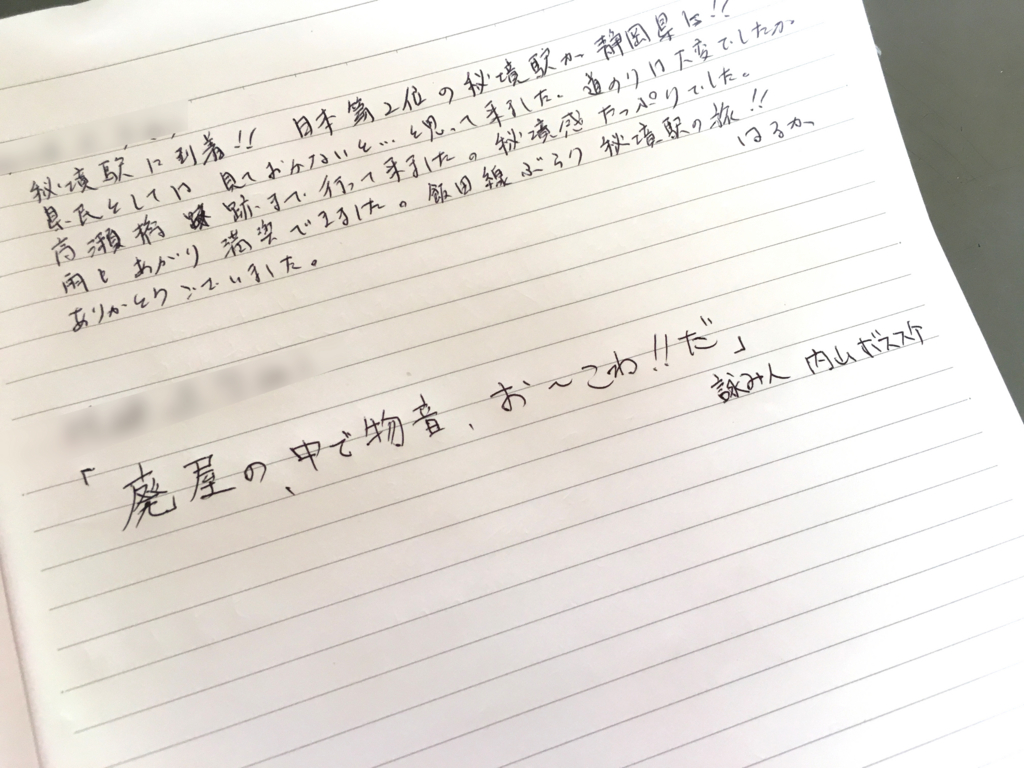 秘境駅に到着!! 日本第2位の秘境駅が静岡県に!!
県民としては見ておかないと…と思って来ました。道のりは大変でしたが
高瀬橋跡まで行って来ました。秘境感たっぷりでした。
雨もあがり満喫できました。飯田線ぶらり秘境駅の旅!!
ありがとうございました。 はるか
「廃屋の、中で物音、お〜こわ!!だ」
詠み人 内山ボススケ